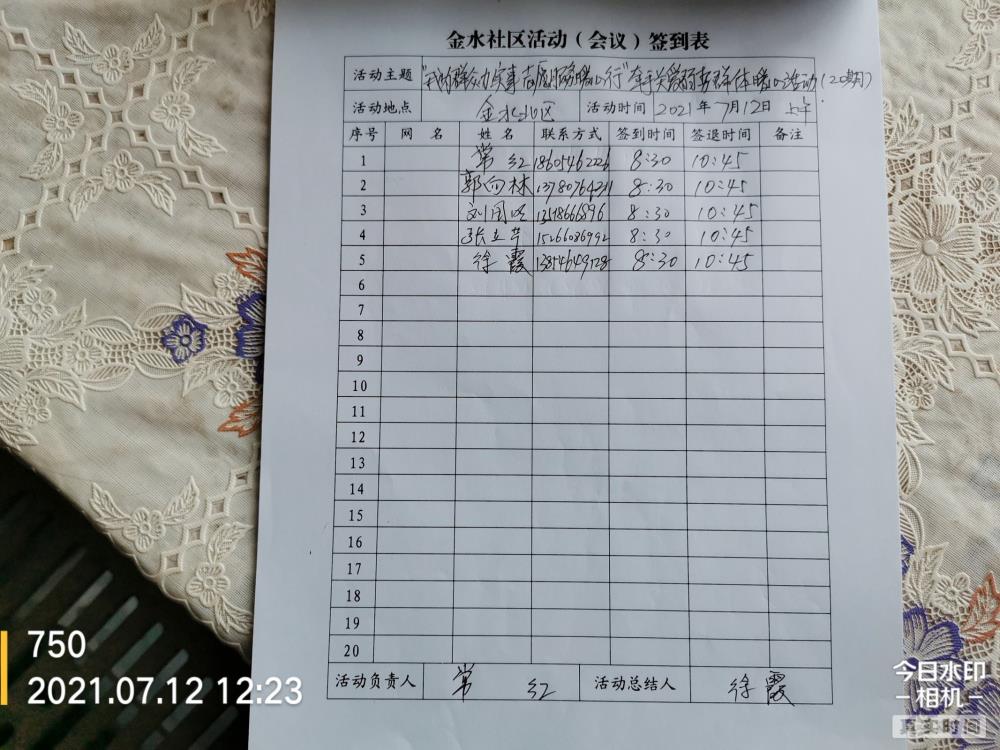 金水社区活动（会议）签到表
活动主题 "我为群众办实事 志愿服务暖心行"牵手关爱弱势群体暖心活动（20期）
活动地点 金水社区 活动时间 2021年7月12日 上午
序号 网 名 姓 名 联系方式 签到时间 签退时间 备注
1 常红 18605462226 8:30 10:45
2 郭向林 13780764211 8:30 10:45
3 8:30 10:45
4 张立芹 15266086992 8:30 10:45
5 徐霞 13854649128 8:30 10:45
6
7
8
9
10
11
12
13
14
15
16
17
18
19
20
活动负责人 常红 活动总结人 徐霞
750
2021.07.12 12:23
今日水印
相机
真实时间